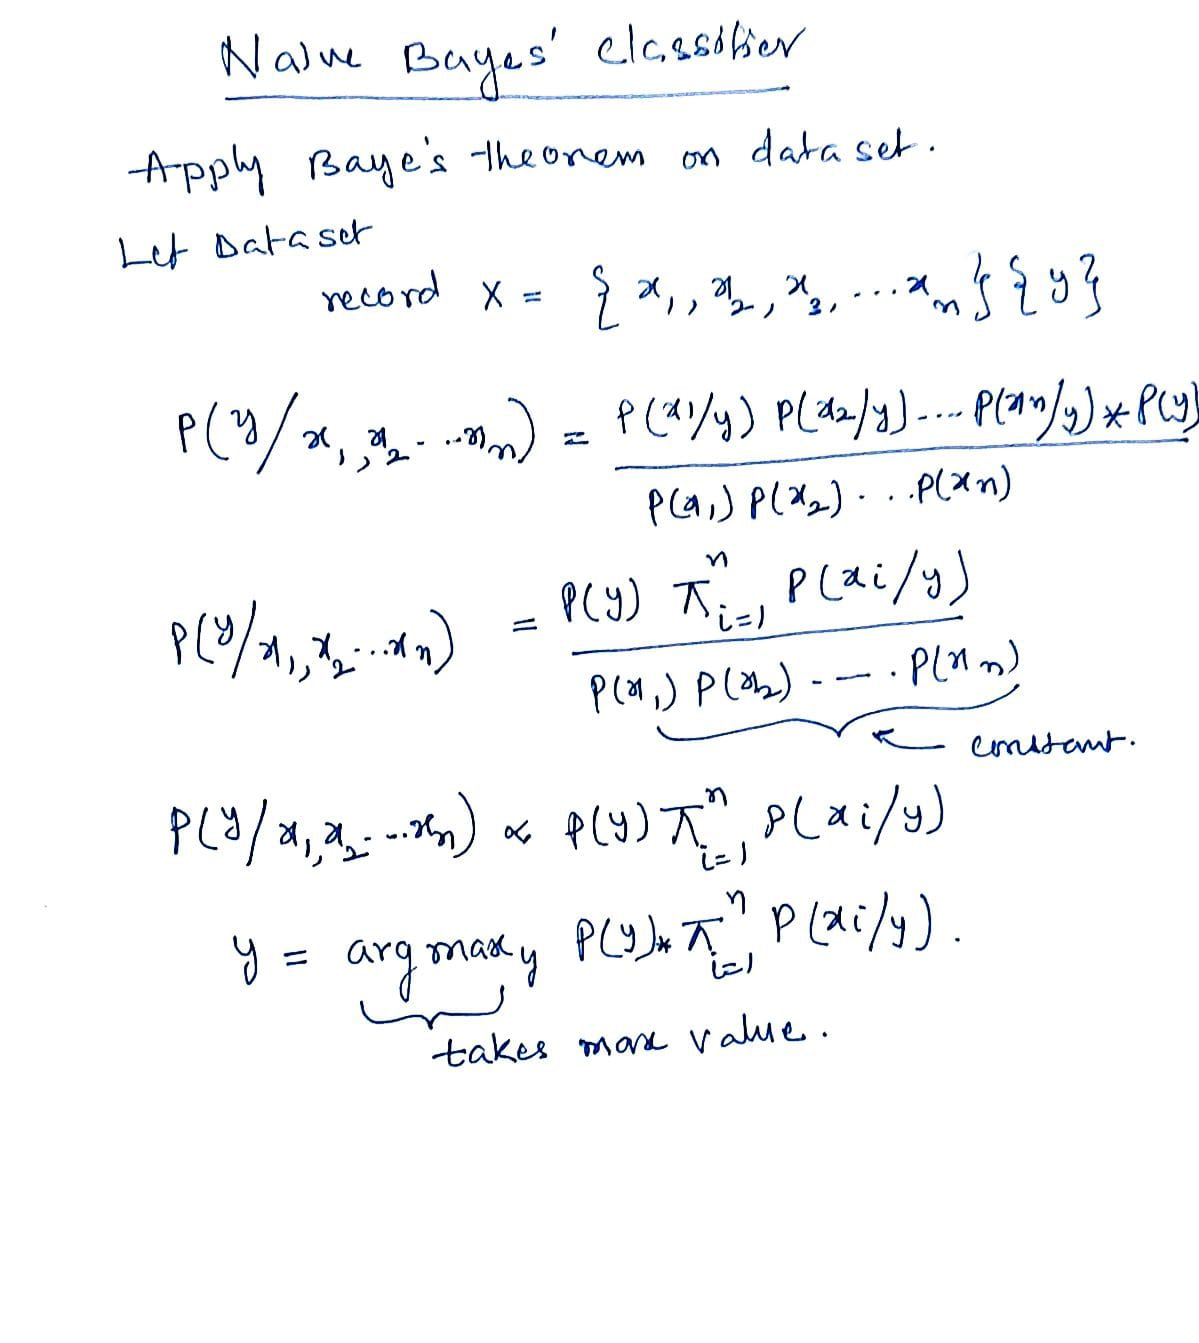 Naive Bayes' Classifier
Apply Baye's theorem on data set.
Let Dataset
record X = { x₁, x₂, x₃, ... xₙ } { y }
P(y/x₁, x₂ - ..xₙ) = P(x1/y) P(x2/y) ---- P(xn/y) * P(y)
P(x₁) P(x₂) . . .P(xn)
P(y/x₁, x₂...xₙ) = P(y) πⁿᵢ₌₁ P(xi/y)
P(x₁) P(x₂) - - - . P(xn)
← constant.
P(y/x₁, x₂- -..xₙ) ∝ P(y) πⁿᵢ₌₁ P(xi/y)
y = argmax y P(y) * πⁿᵢ₌₁ P(xi/y).
takes max value.